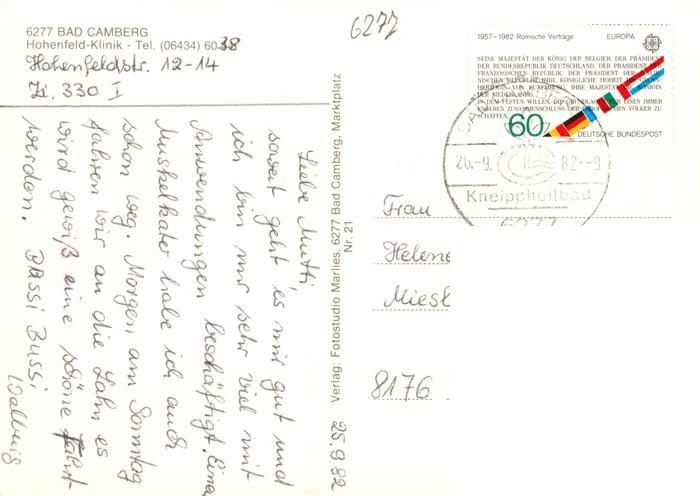 6277 BAD CAMBERG
Hohenfeld-Klinik - Tel. (06434) 6038
Hohenfeldstr. 12-14
Zi. 330 I
6277
Liebe Mutti,
soweit geht es mir gut und
ich bin nur sehr viel mit
Anwendungen beschäftigt. Einen
Muskelkater habe ich auch
schon weg. Morgen am Sonntag
fahren wir an die Lahn es
wird gewiß eine schöne Fahrt
werden. Bussi Bussi
Walburg
25.9.82
Verlag: Fotostudio Marlies, 6277 Bad Camberg, Marktplatz
Nr. 21
1957-1982 Römische Verträge EUROPA
SEINE MAJESTÄT DER KÖNIG DER BELGIER, DER PRÄSIDENT
DER BUNDESREPUBLIK DEUTSCHLAND, DER PRÄSIDENT DER
FRANZÖSISCHEN REPUBLIK, DER PRÄSIDENT DER ITALIE-
NISCHEN REPUBLIK, IHRE KÖNIGLICHE HOHEIT DIE GROSS-
HERZOGIN VON LUXEMBURG, IHRE MAJESTÄT DIE KÖNIGIN
DER NIEDERLANDE,
IN DEM FESTEN WILLEN, DIE GRUNDLAGEN FÜR EINEN IMMER
ENGEREN ZUSAMMENSCHLUSS DER EUROPÄISCHEN VÖLKER ZU
SCHAFFEN,
60
DEUTSCHE BUNDESPOST
26.-9. 82--9
Kneippheilbad
6277
Frau
Helene
Miesb
8176